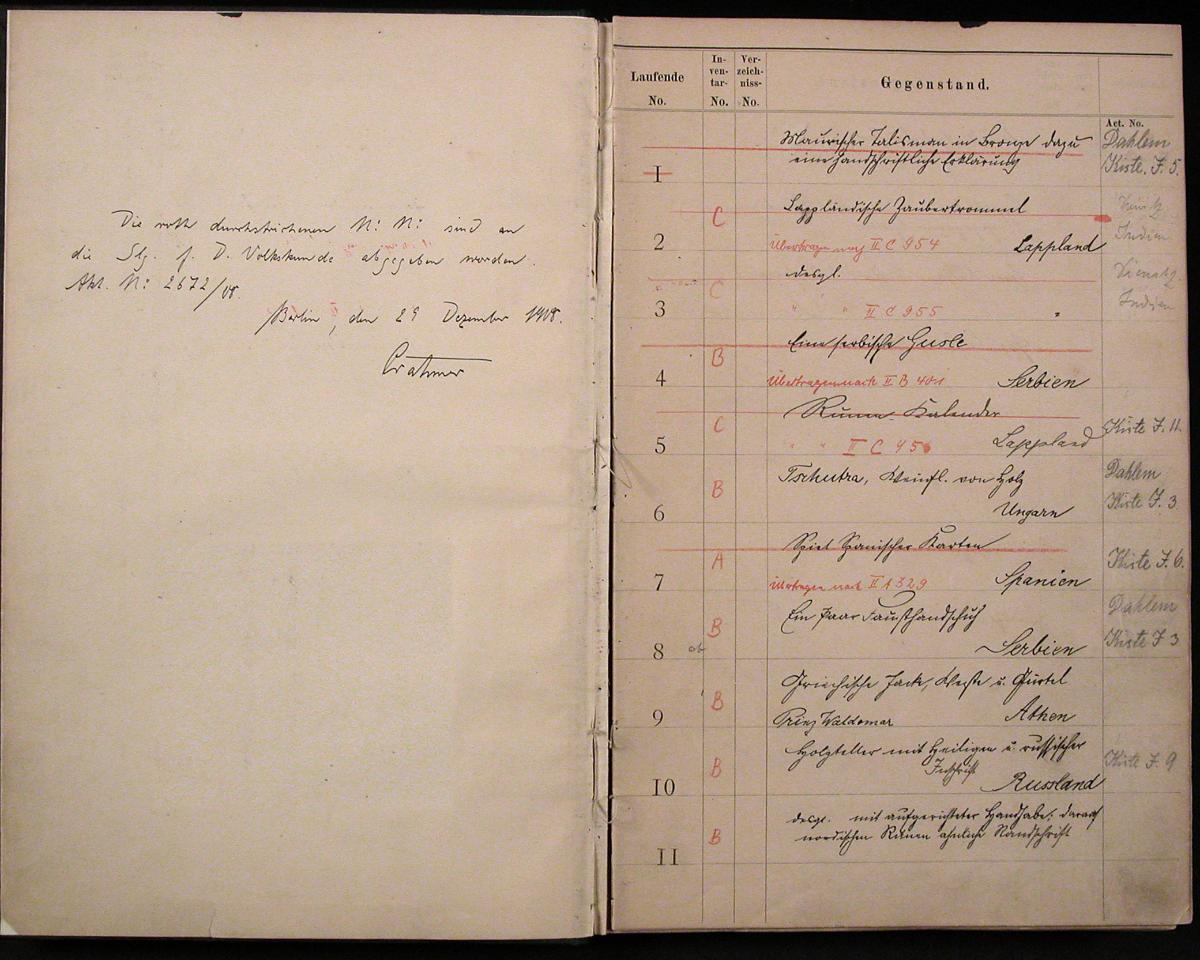 Die roth durchstrichenen N: N: sind an
die Slg. f. D. Volkskunde abgegeben worden.
Akt. N: 2672/08.
Berlin, den 29 Dezember 1908.
Laufende No.
Inventar-No.
Verzeichniss-No.
Gegenstand.
Act. No.
Maurischer Talisman in Bronze dazu
eine handschriftliche Erklärung
Dahlem
Kiste. F. 5.
1
Lappländische Zaubertrommel
C
2
Übertragen nach II C 954
Lappland
Indien
desgl.
C
3
" " II C 955
"
Indien
Eine serbische Gusle
B
4
Übertragen nach II B 401
Serbien
Runen Kalender
C
Kiste F. 11.
5
" " II C 456
Lappland
Tschutra, Weinfl. von Holz
Dahlem
B
Kiste F. 3
6
Ungarn
Spiel Spanischer Karten
A
Kiste F. 6.
7
Übertragen nach II A 329
Spanien
Ein Paar Fausthandschuh
Dahlem
B
Kiste F 3
8
ab
Serbien
Griechische Jacke, Weste u. Gürtel
B
9
Prinz Waldemar
Athen
Holzteller mit Heiligen u. russischer
Inschrift
B
Kiste F. 9
10
Russland
desgl. mit aufgerichteter Handhabe, darauf
nordischen Runen ähnliche Randschrift
B
11